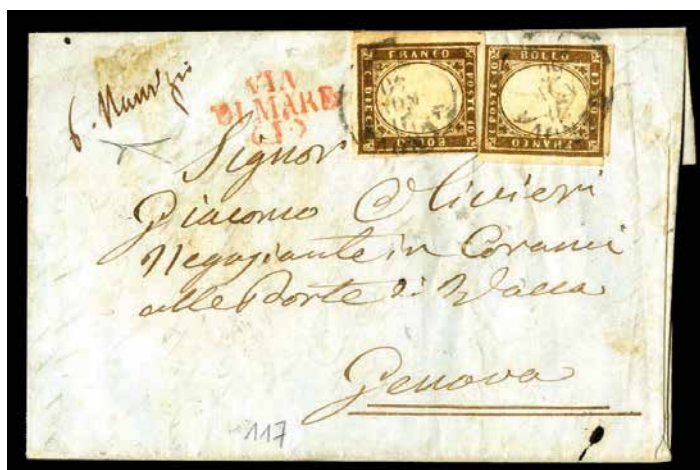 VIA
DI MARE
FRANCO
BOLLO
BOLLO
FRANCO
Signor
Giacomo Olivieri
Negoziante in Corami
alle Porte di Vacca
Genova
117